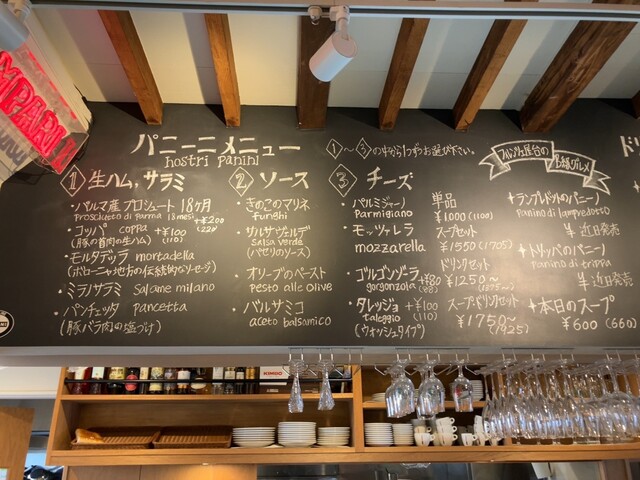 パニーニメニュー
nostri panini
①〜③の中から1つずつお選び下さい。
① 生ハム、サラミ
・パルマ産プロシュート 18ヶ月
Prosciutto di Parma 18mesi +¥200
(220)
・コッパ coppa +¥100
(豚の首肉の生ハム) (110)
・モルタデッラ mortadella
(ボローニャ地方の伝統的なソーセージ)
・ミラノサラミ Salame milano
・パンチェッタ pancetta
(豚バラ肉の塩づけ)
② ソース
・きのこのマリネ
funghi
・サルサヴェルデ
salsa verde
(パセリのソース)
・オリーブのペースト
pesto alle olive
・バルサミコ
aceto balsamico
③ チーズ
・パルミジャーノ
Parmigiano
・モッツァレラ
mozzarella
・ゴルゴンゾーラ +¥80
gorgonzola (88)
・タレッジョ +¥100
taleggio (110)
(ウォッシュタイプ)
単品
¥1000(1100)
スープセット
¥1550(1705)
ドリンクセット
¥1250〜
(1375〜)
スープ・ドリンクセット
¥1750〜
(1925)
フィレンツェ屋台の
B級グルメ
+ランプレドットのパニーノ
Panino di lampredotto
¥近日発売
+トリッパのパニーノ
Panino di trippa
¥近日発売
+本日のスープ
¥600 (660)
ド